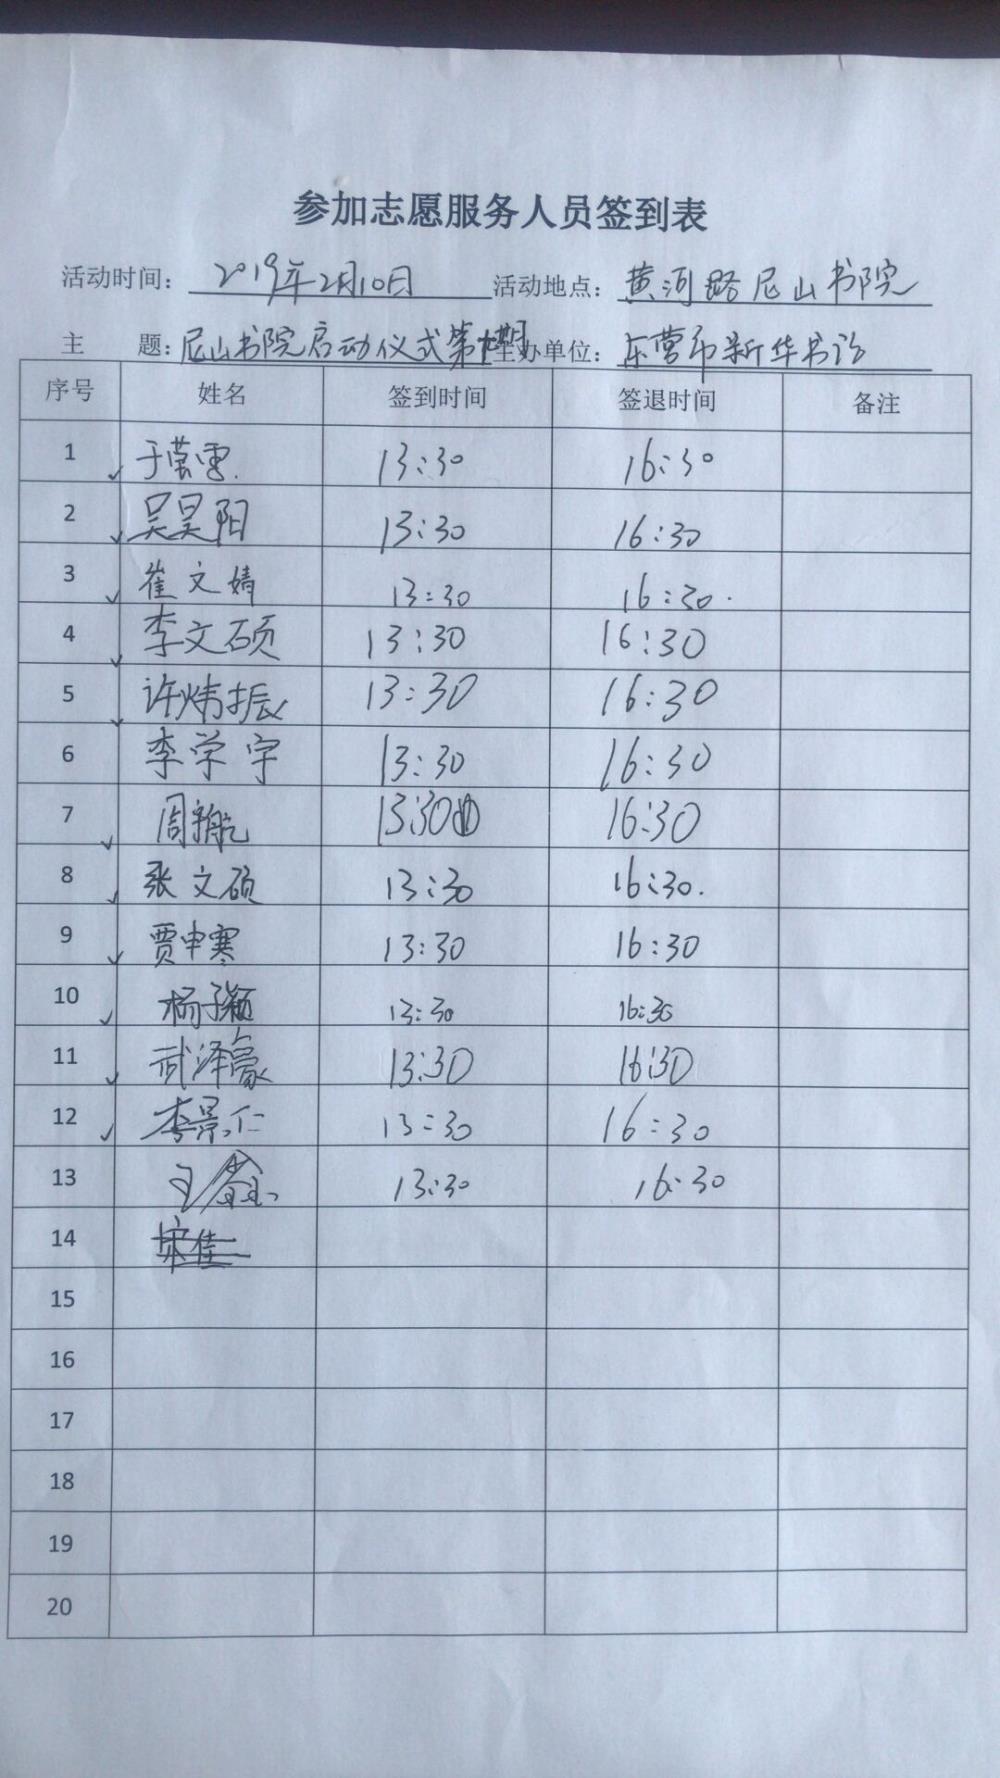 参加志愿服务人员签到表
活动时间： 2019年2月10日 活动地点： 黄河路尼山书院
主 题： 尼山书院启动仪式第十期 主办单位： 东营市新华书店
序号 姓名 签到时间 签退时间 备注
1 于 雪 13:30 16:30
2 吴昊阳 13:30 16:30
3 崔文婧 13:30 16:30
4 李文硕 13:30 16:30
5 许炜振 13:30 16:30
6 李学宇 13:30 16:30
7 周翰航 13:30 16:30
8 张文硕 13:30 16:30
9 贾申寒 13:30 16:30
10 杨子颖 13:30 16:30
11 武泽豪 13:30 16:30
12 李景仁 13:30 16:30
13 13:30 16:30
14 宋佳
15
16
17
18
19
20